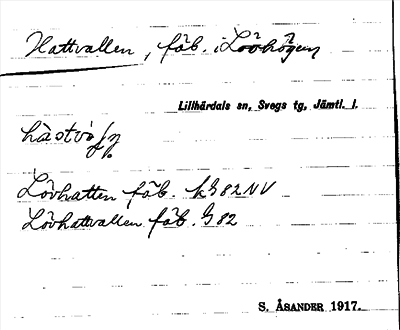 Hattvallen, fäb. i Lövhögen
Lillhärdals sn, Svegs tg, Jämtl. l.
Lövhatten fäb. kG 82 NV
Lövhattvallen fäb. G 82
S. ÅSANDER 1917.